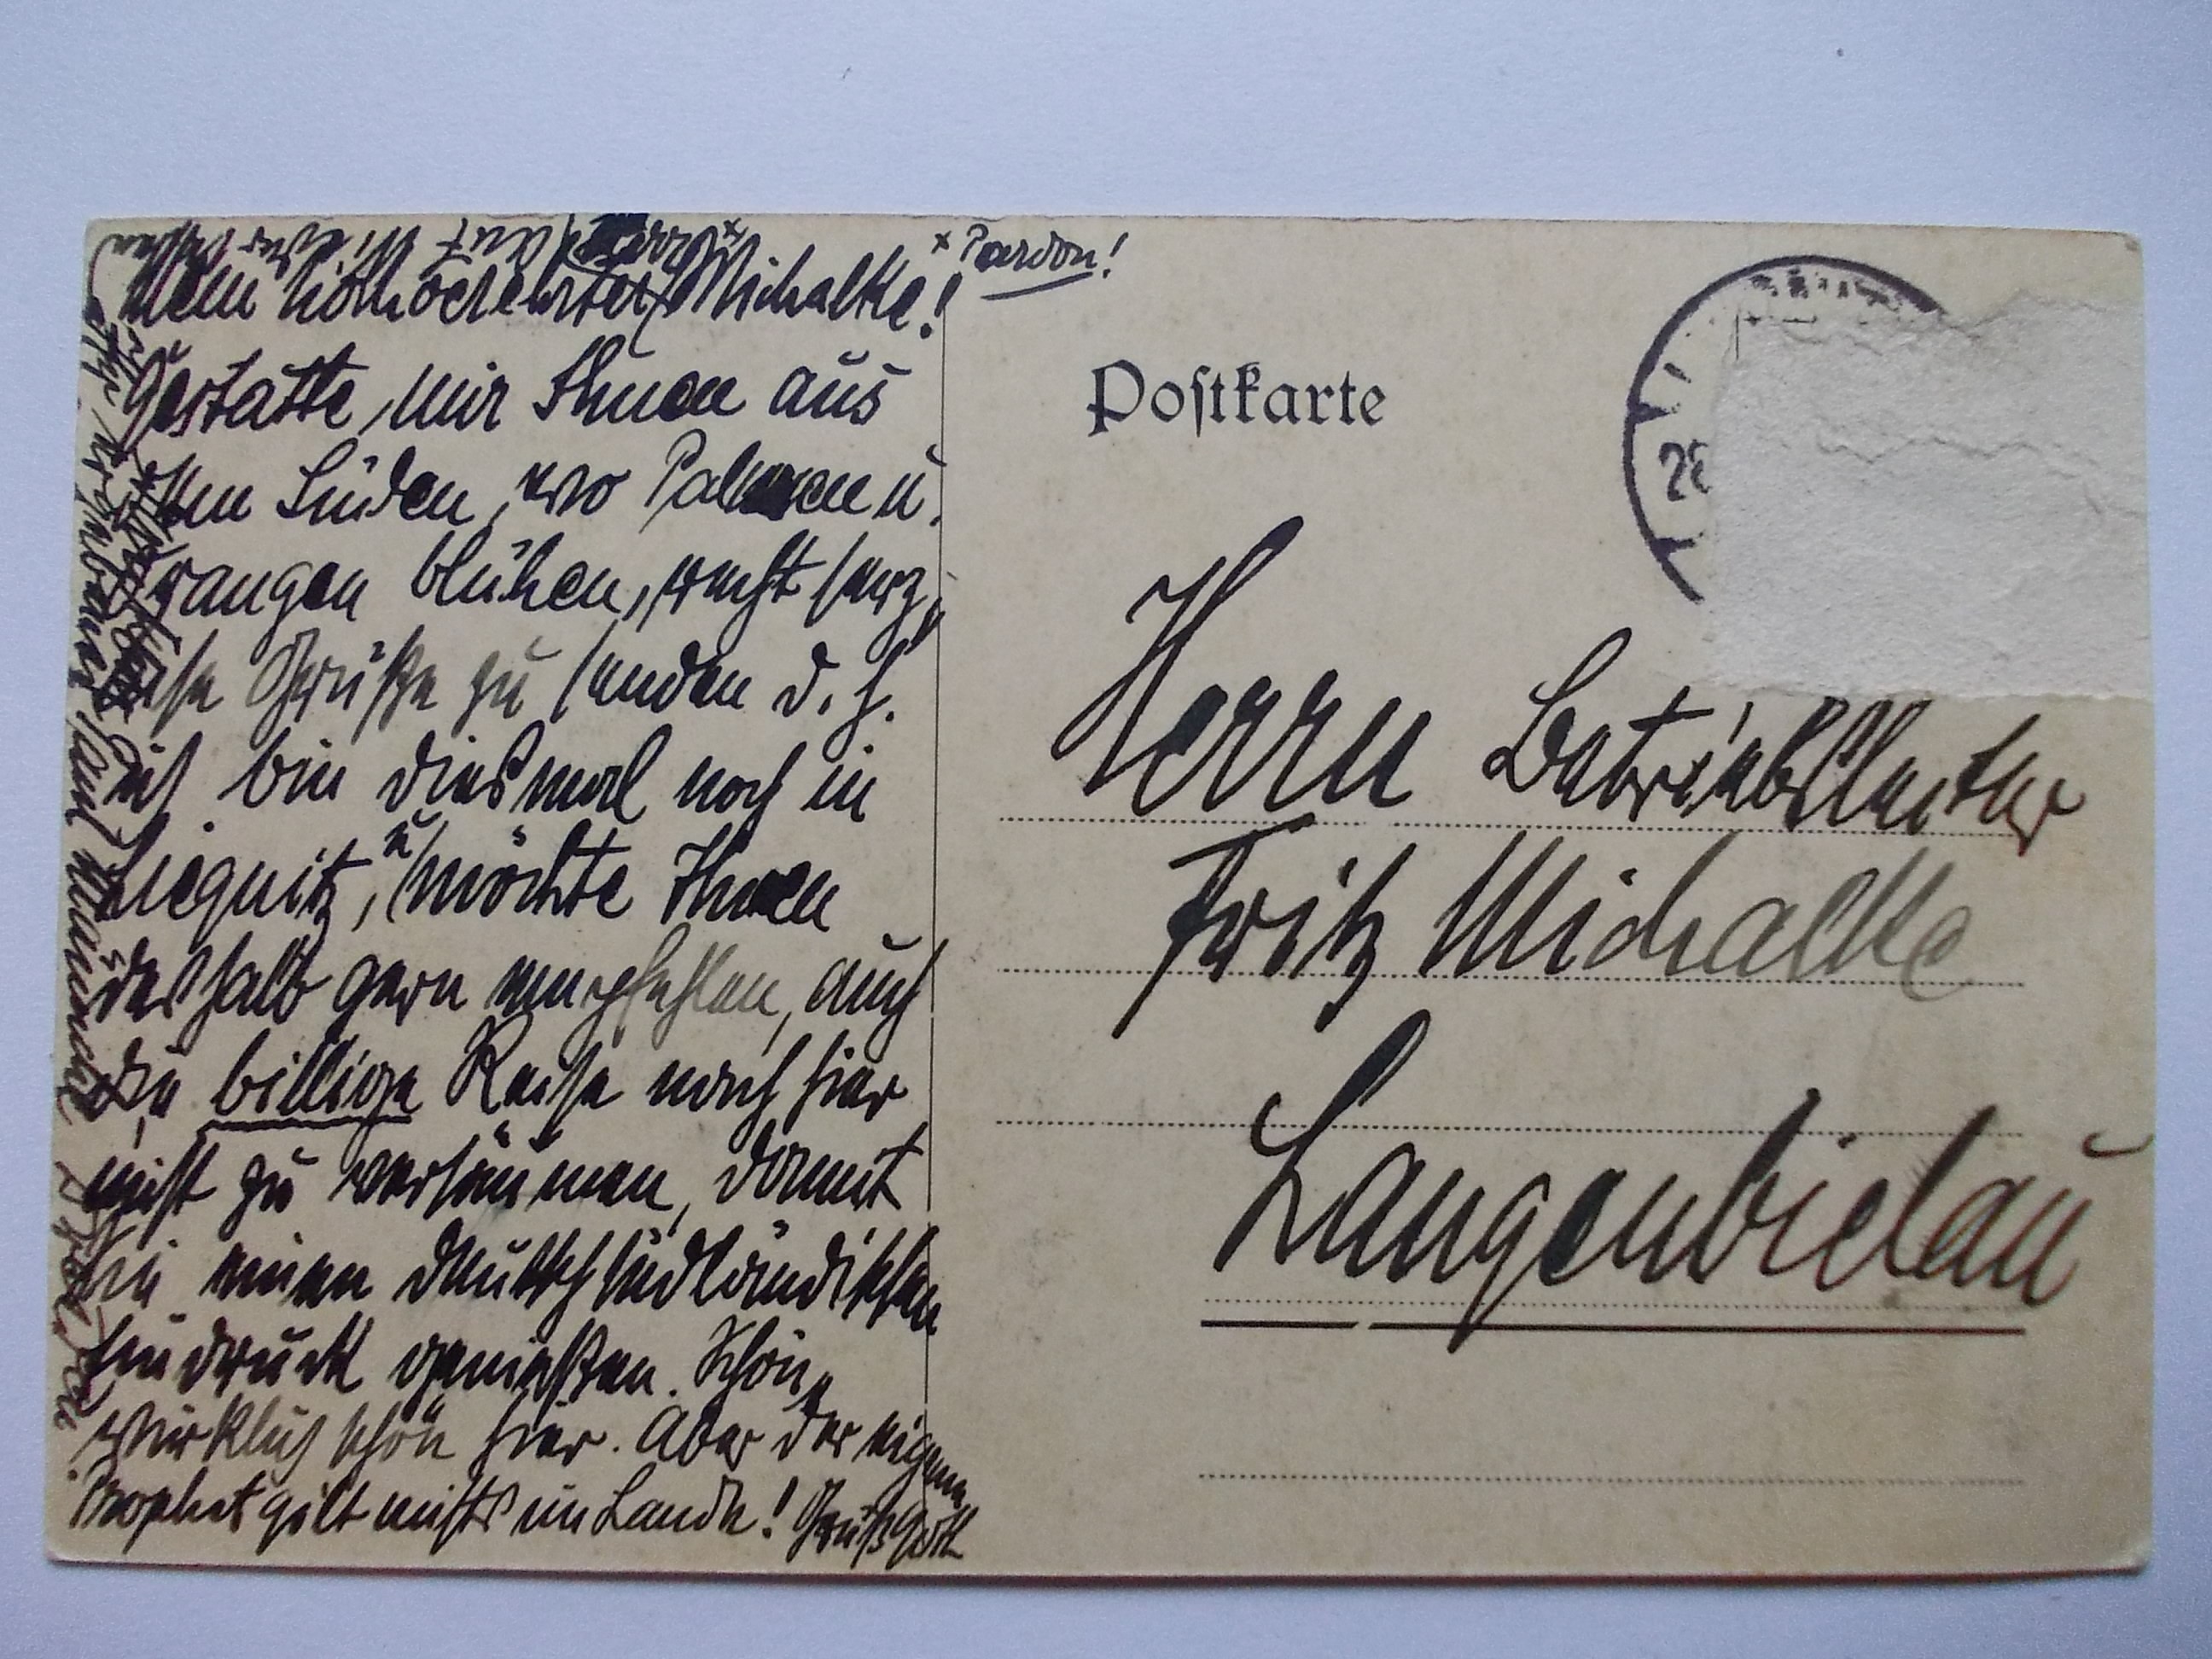 Mein hochgeehrter Herr × Michalke!
× Pardon!
Gestatte mir Ihnen aus
dem Süden, wo Palmen u.
Orangen blühen, recht herz-
liche Grüße zu senden d. h.
ich bin diesmal noch in
Liegnitz, u. möchte Ihnen
deshalb gern empfehlen, auch
die billige Reise nach hier
nicht zu versäumen, damit
Sie einen deutsch südländischen
Eindruck genießen. Schön,
wirklich schön hier. Aber der eigene
Prophet gilt nichts im Lande! Grüß Gott
Postkarte
28
Herrn Betriebsleiter
Fritz Michalke
Langenbielau